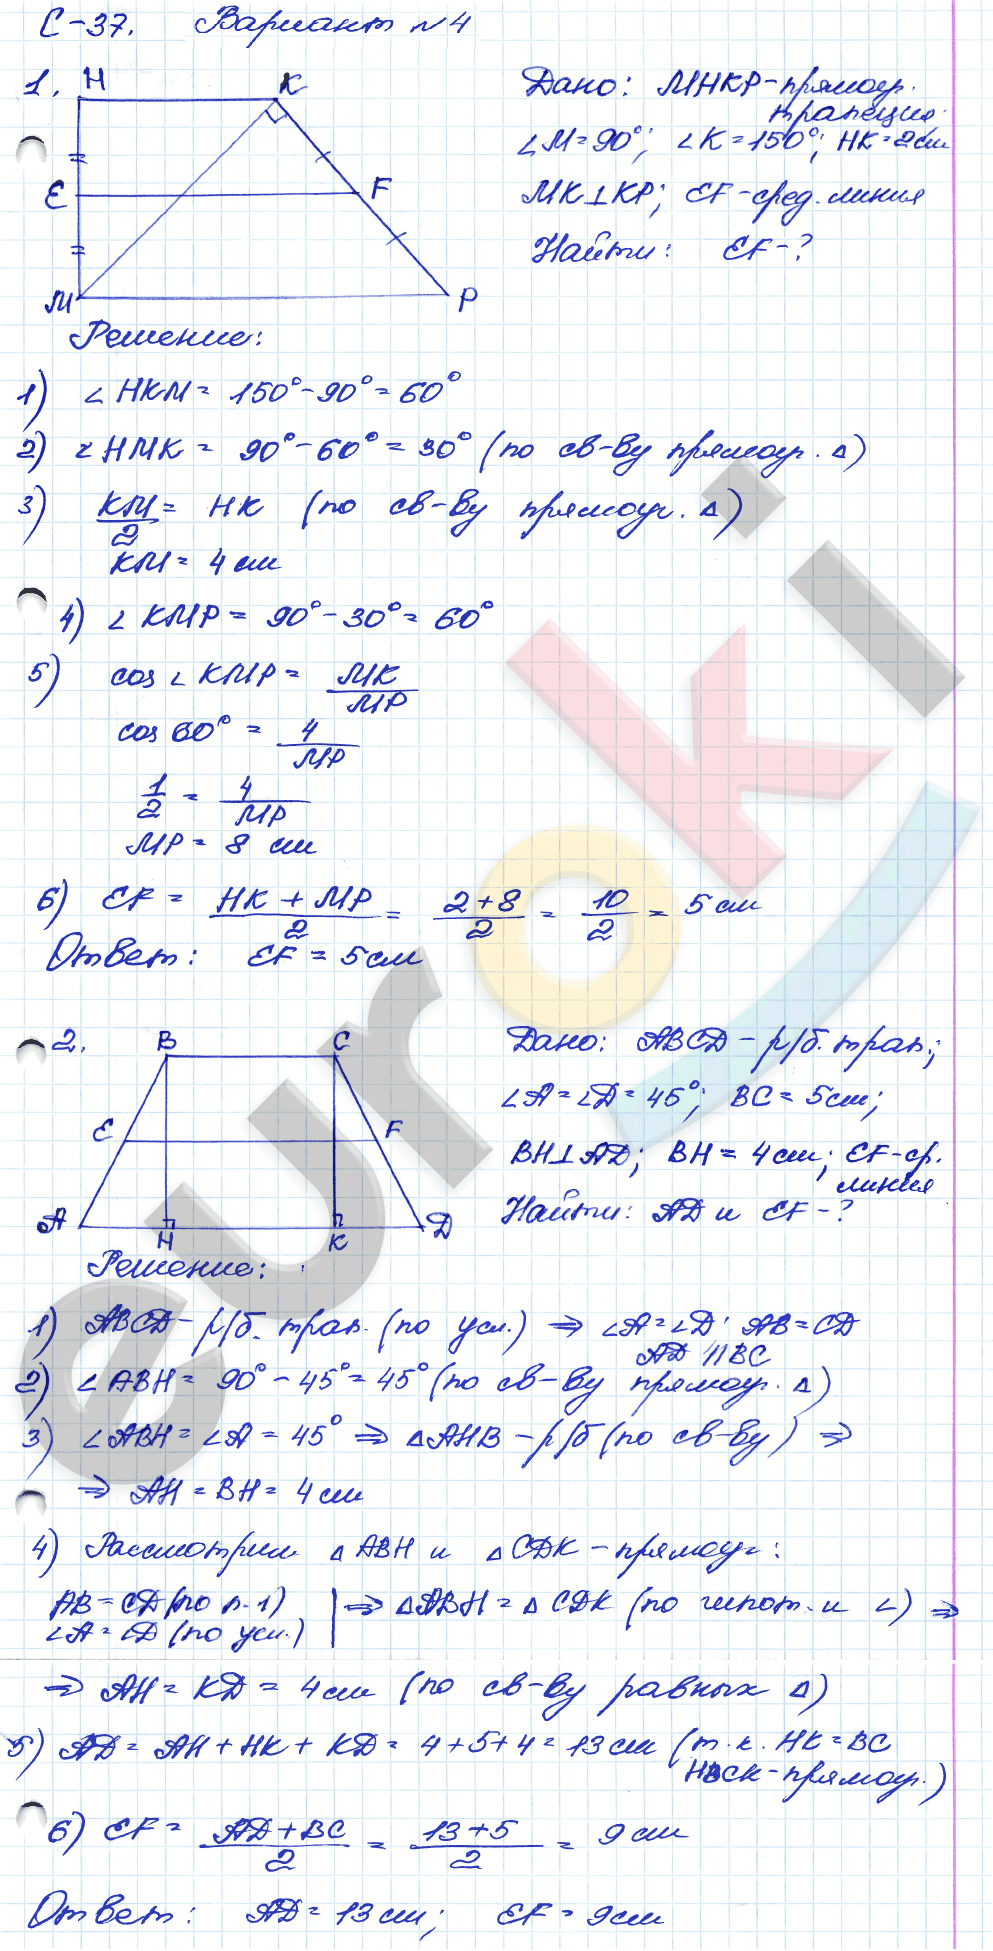 С-37. Вариант №4
1.
H K
E F
M P
Дано: MHKP-прямоуг.
трапеция.
∠M=90°; ∠K=150°; HK=2см
MK⊥KP; EF-сред. линия
Найти: EF-?
Решение:
1) ∠HKM= 150°-90°=60°
2) ∠HMK = 90°-60°=30° (по св-ву прямоуг. Δ)
3) KM/2 = HK (по св-ву прямоуг. Δ)
KM= 4 см
4) ∠KMP= 90°-30°=60°
5) cos∠KMP= MK/MP
cos 60° = 4/MP
1/2 = 4/MP
MP= 8 см
6) EF = (HK+MP)/2 = (2+8)/2 = 10/2 = 5см
Ответ: EF=5см
2.
B C
E F
A H K D
Дано: ABCD-р/б. трап.;
∠A=∠D=45°; BC=5см;
BH⊥AD; BH=4см; EF-ср.
линия
Найти: AD и EF-?
Решение:
1) ABCD-р/б. трап. (по усл.) ⇒ ∠A=∠D; AB=CD
AD ∥ BC
2) ∠ABH= 90°-45°=45° (по св-ву прямоуг. Δ)
3) ∠ABH=∠A=45° ⇒ ΔAHB-р/б (по св-ву) ⇒
⇒ AH=BH=4см
4) Рассмотрим ΔABH и ΔCDK-прямоуг:
AB=CD (по п.1)
∠A=∠D (по усл.) | ⇒ ΔABH=ΔCDK (по гипот. и ∠) ⇒
⇒ AH=KD=4см (по св-ву равных Δ)
5) AD=AH+HK+KD=4+5+4=13см (т.к. HK=BC
HBCK-прямоуг.)
6) EF= (AD+BC)/2 = (13+5)/2 = 9см
Ответ: AD=13см; EF=9см
euroki